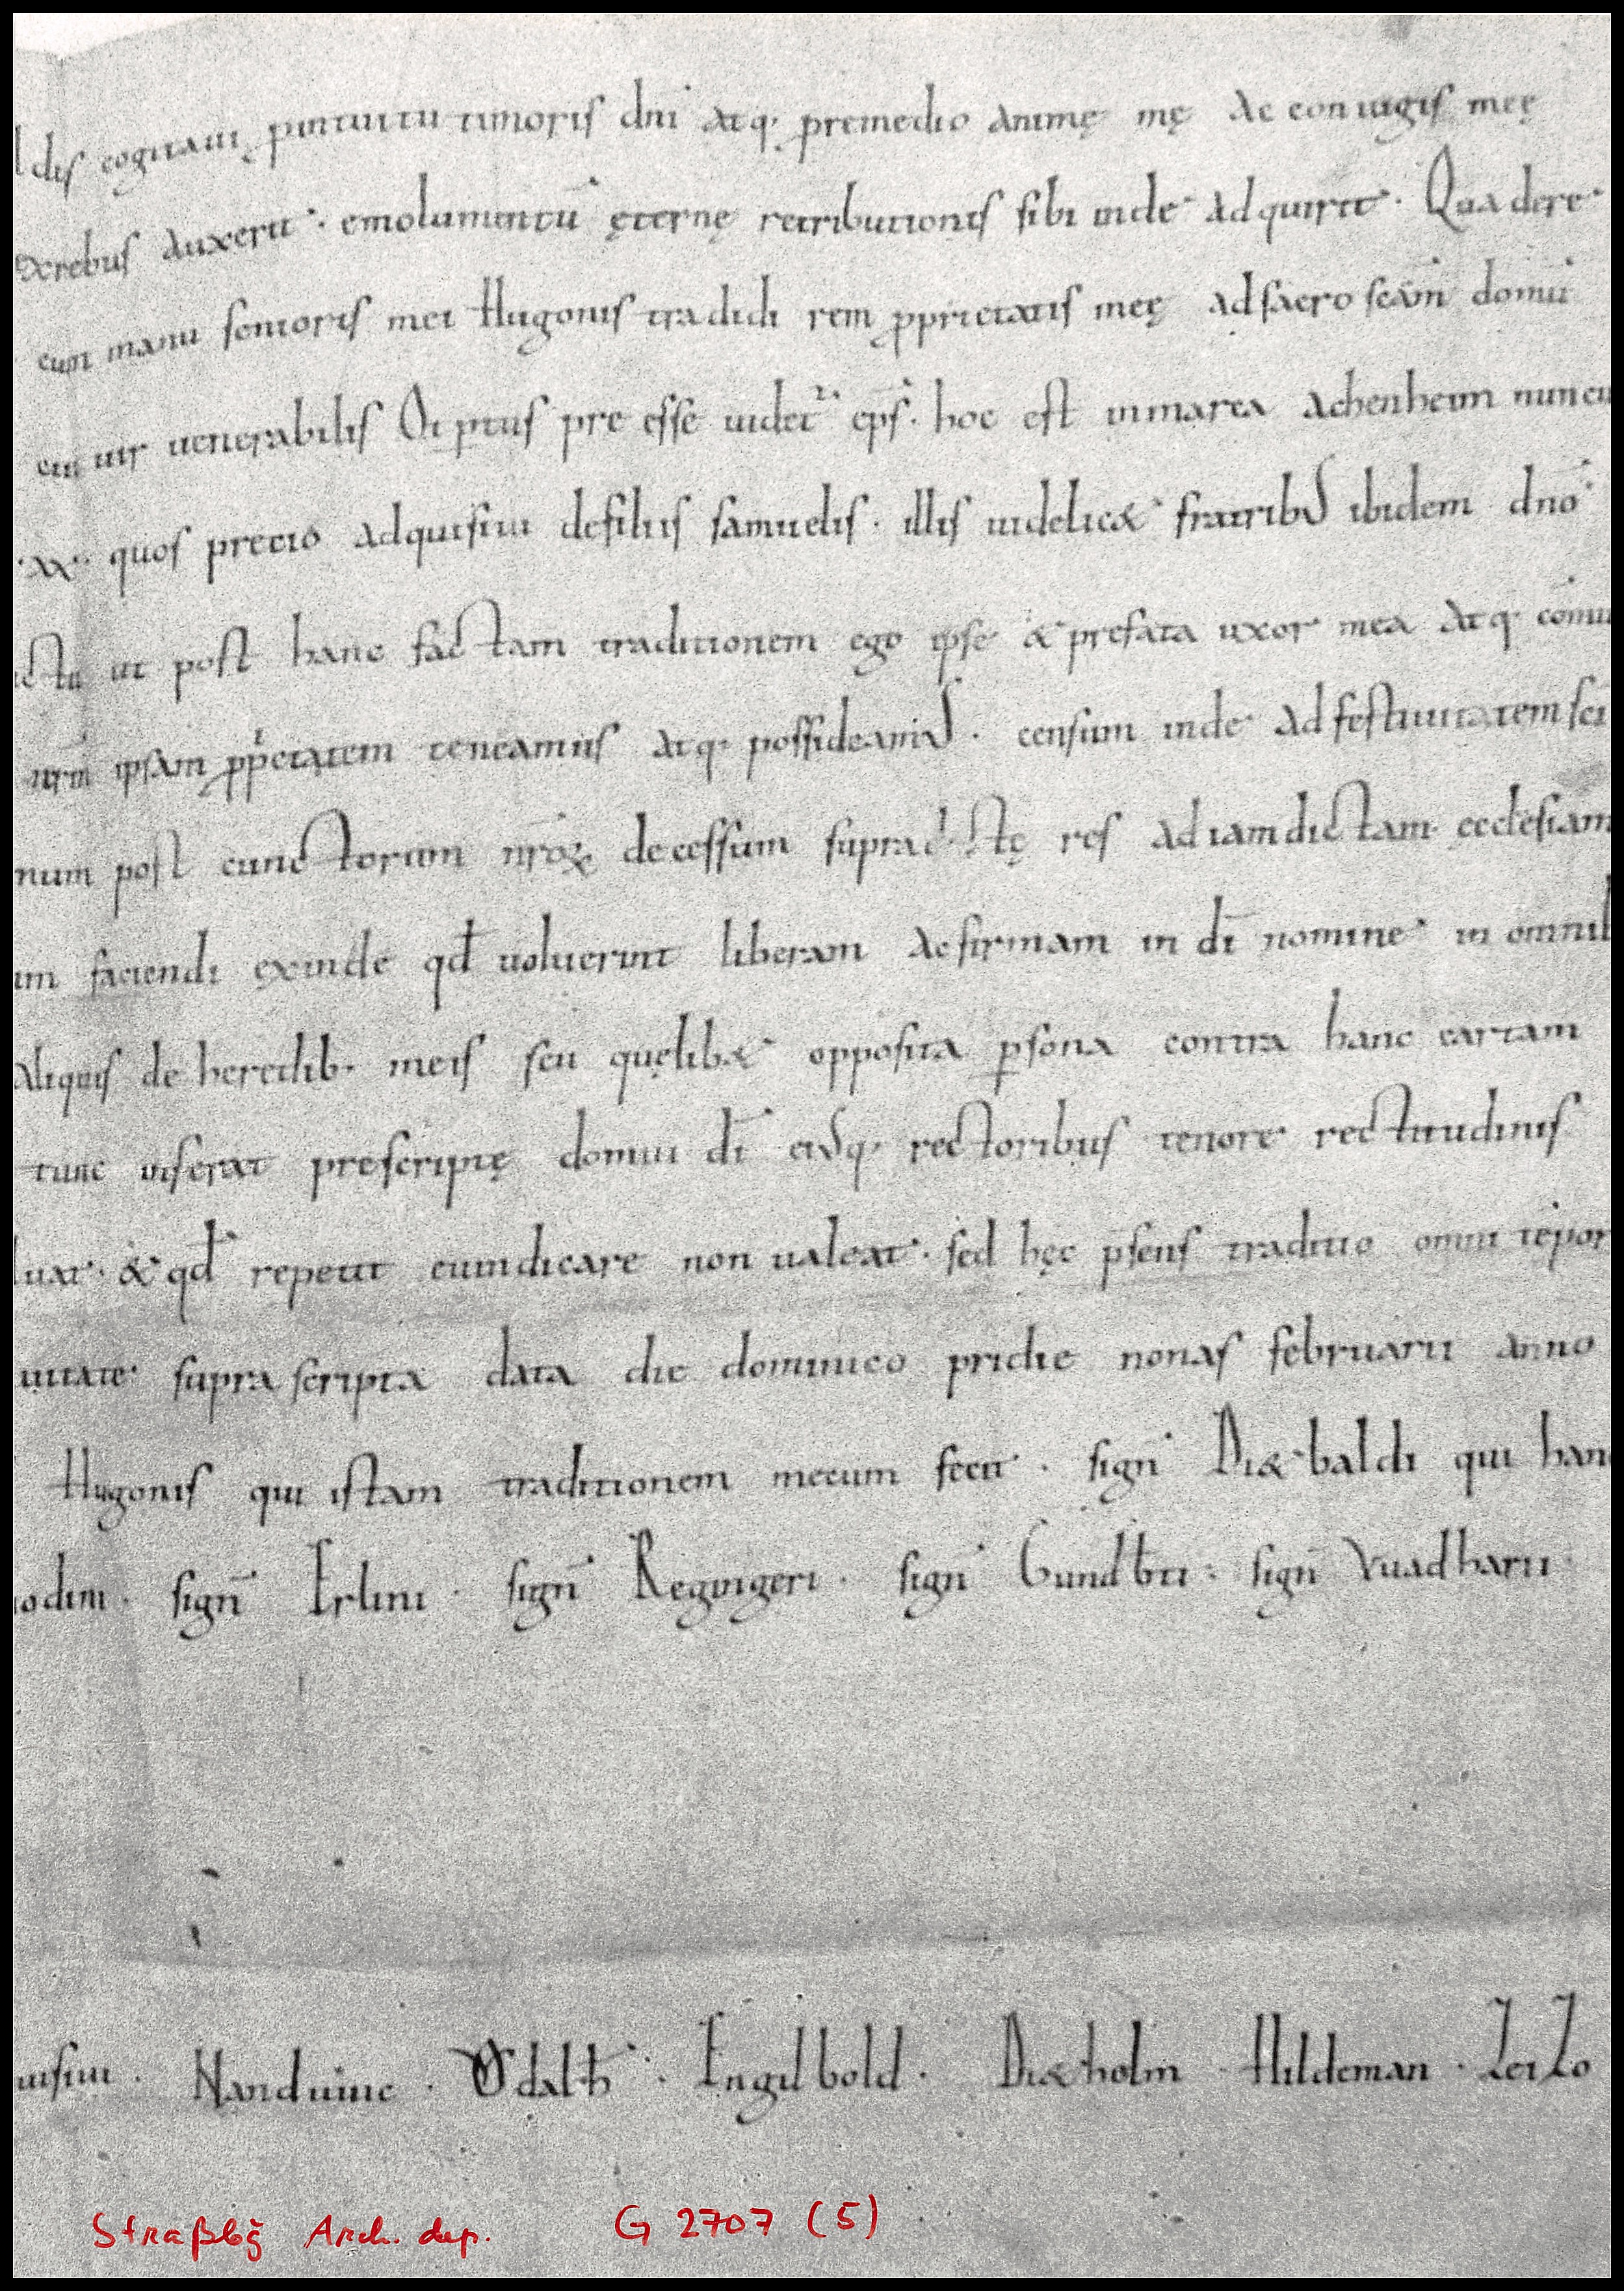 dis cogitavi p intuitu timoris dn̄i atq; p remedio animę mę ac coniugis meę
ex rebus auxerit · emolumentū ęternę retributionis sibi inde adquirit · Qua de re
cum manu senioris mei Hugonis tradidi rem p̄prietatis meę ad sacro sc̄am domū
cui uir uenerabilis Oipertus pre esse uidetur ep̄s · hoc est in marca achenheim nuncu
·xx· quos precio adquisiui de filiis samuelis · illis uidelic& fratribus ibidem dn̄o
ut post hanc factam traditionem ego ipse & prefata uxor mea atq; com̄u
nr̄m ipsam p̄p̄etatem teneamus atq; possideamus · censum inde ad festiuitatem sc̄i
num post cunctorum nr̄oꝝ decessum supradictę res ad iam dictam ecclesiam
im faciendi exinde qđ uoluerint liberam ac firmam in dī nomine in omnib
aliquis de heredib; meis seu quęlib& opposita p̱sona contra hanc cartam
tunc inferat prescriptę domui dī eiusq; rectoribus tenore rectitudinis
uat · & qđ repetit euindicare non ualeat · sed hęc p̄sens traditio omni tēpor
uitate supra scripta data die dominico pridie nonas februarii anno
Hugonis qui istam traditionem mecum fecit · sign̄ Di&baldi qui han
odim · sign̄ Erlini · sign̄ Reginigeri · sign̄ Gundb̄ti · sign̄ Vuadharii
uisiui · Nanduuinc · Odalħ · Engilbold · Di&holm · Hildeman · ZeiZo
Straßbg̃ Arch. dep. G 2707 (5)